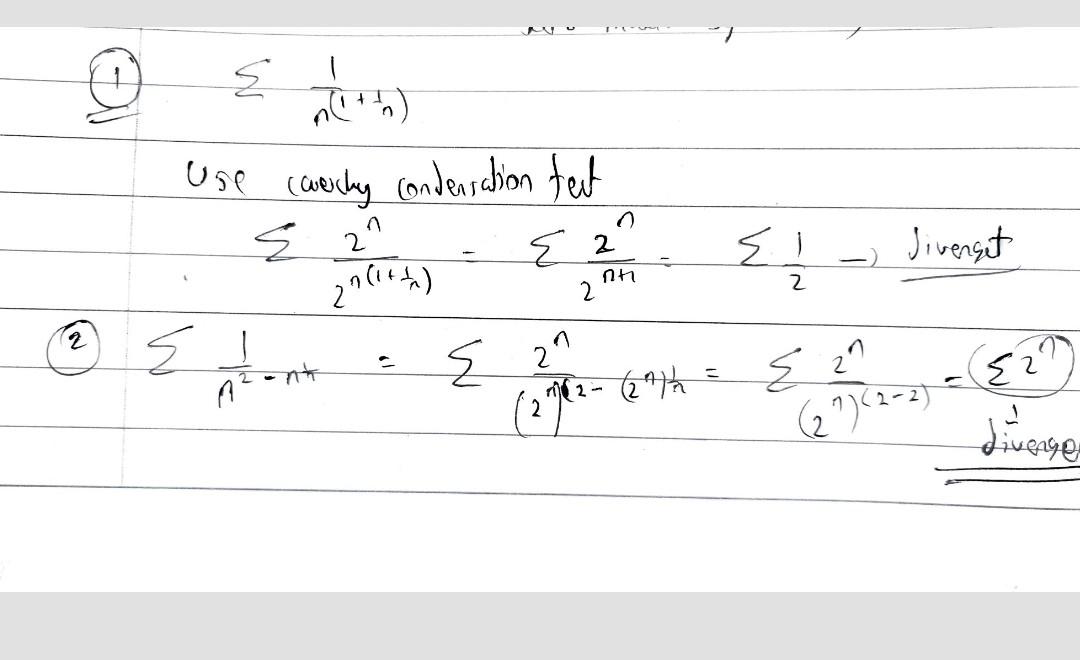 ① Σ 1/n^(1+1/n)
Use cauchy condensation test
Σ 2^n/2^n(1+1/n) = Σ 2^n/2^(n+1) = Σ 1/2 → divergent
② Σ 1/n^(2-n^(1/n)) = Σ 2^n/(2^n)^(2-(2^n)^(1/n)) = Σ 2^n/(2^n)^(2-2) = Σ 2^n
↓
diverge